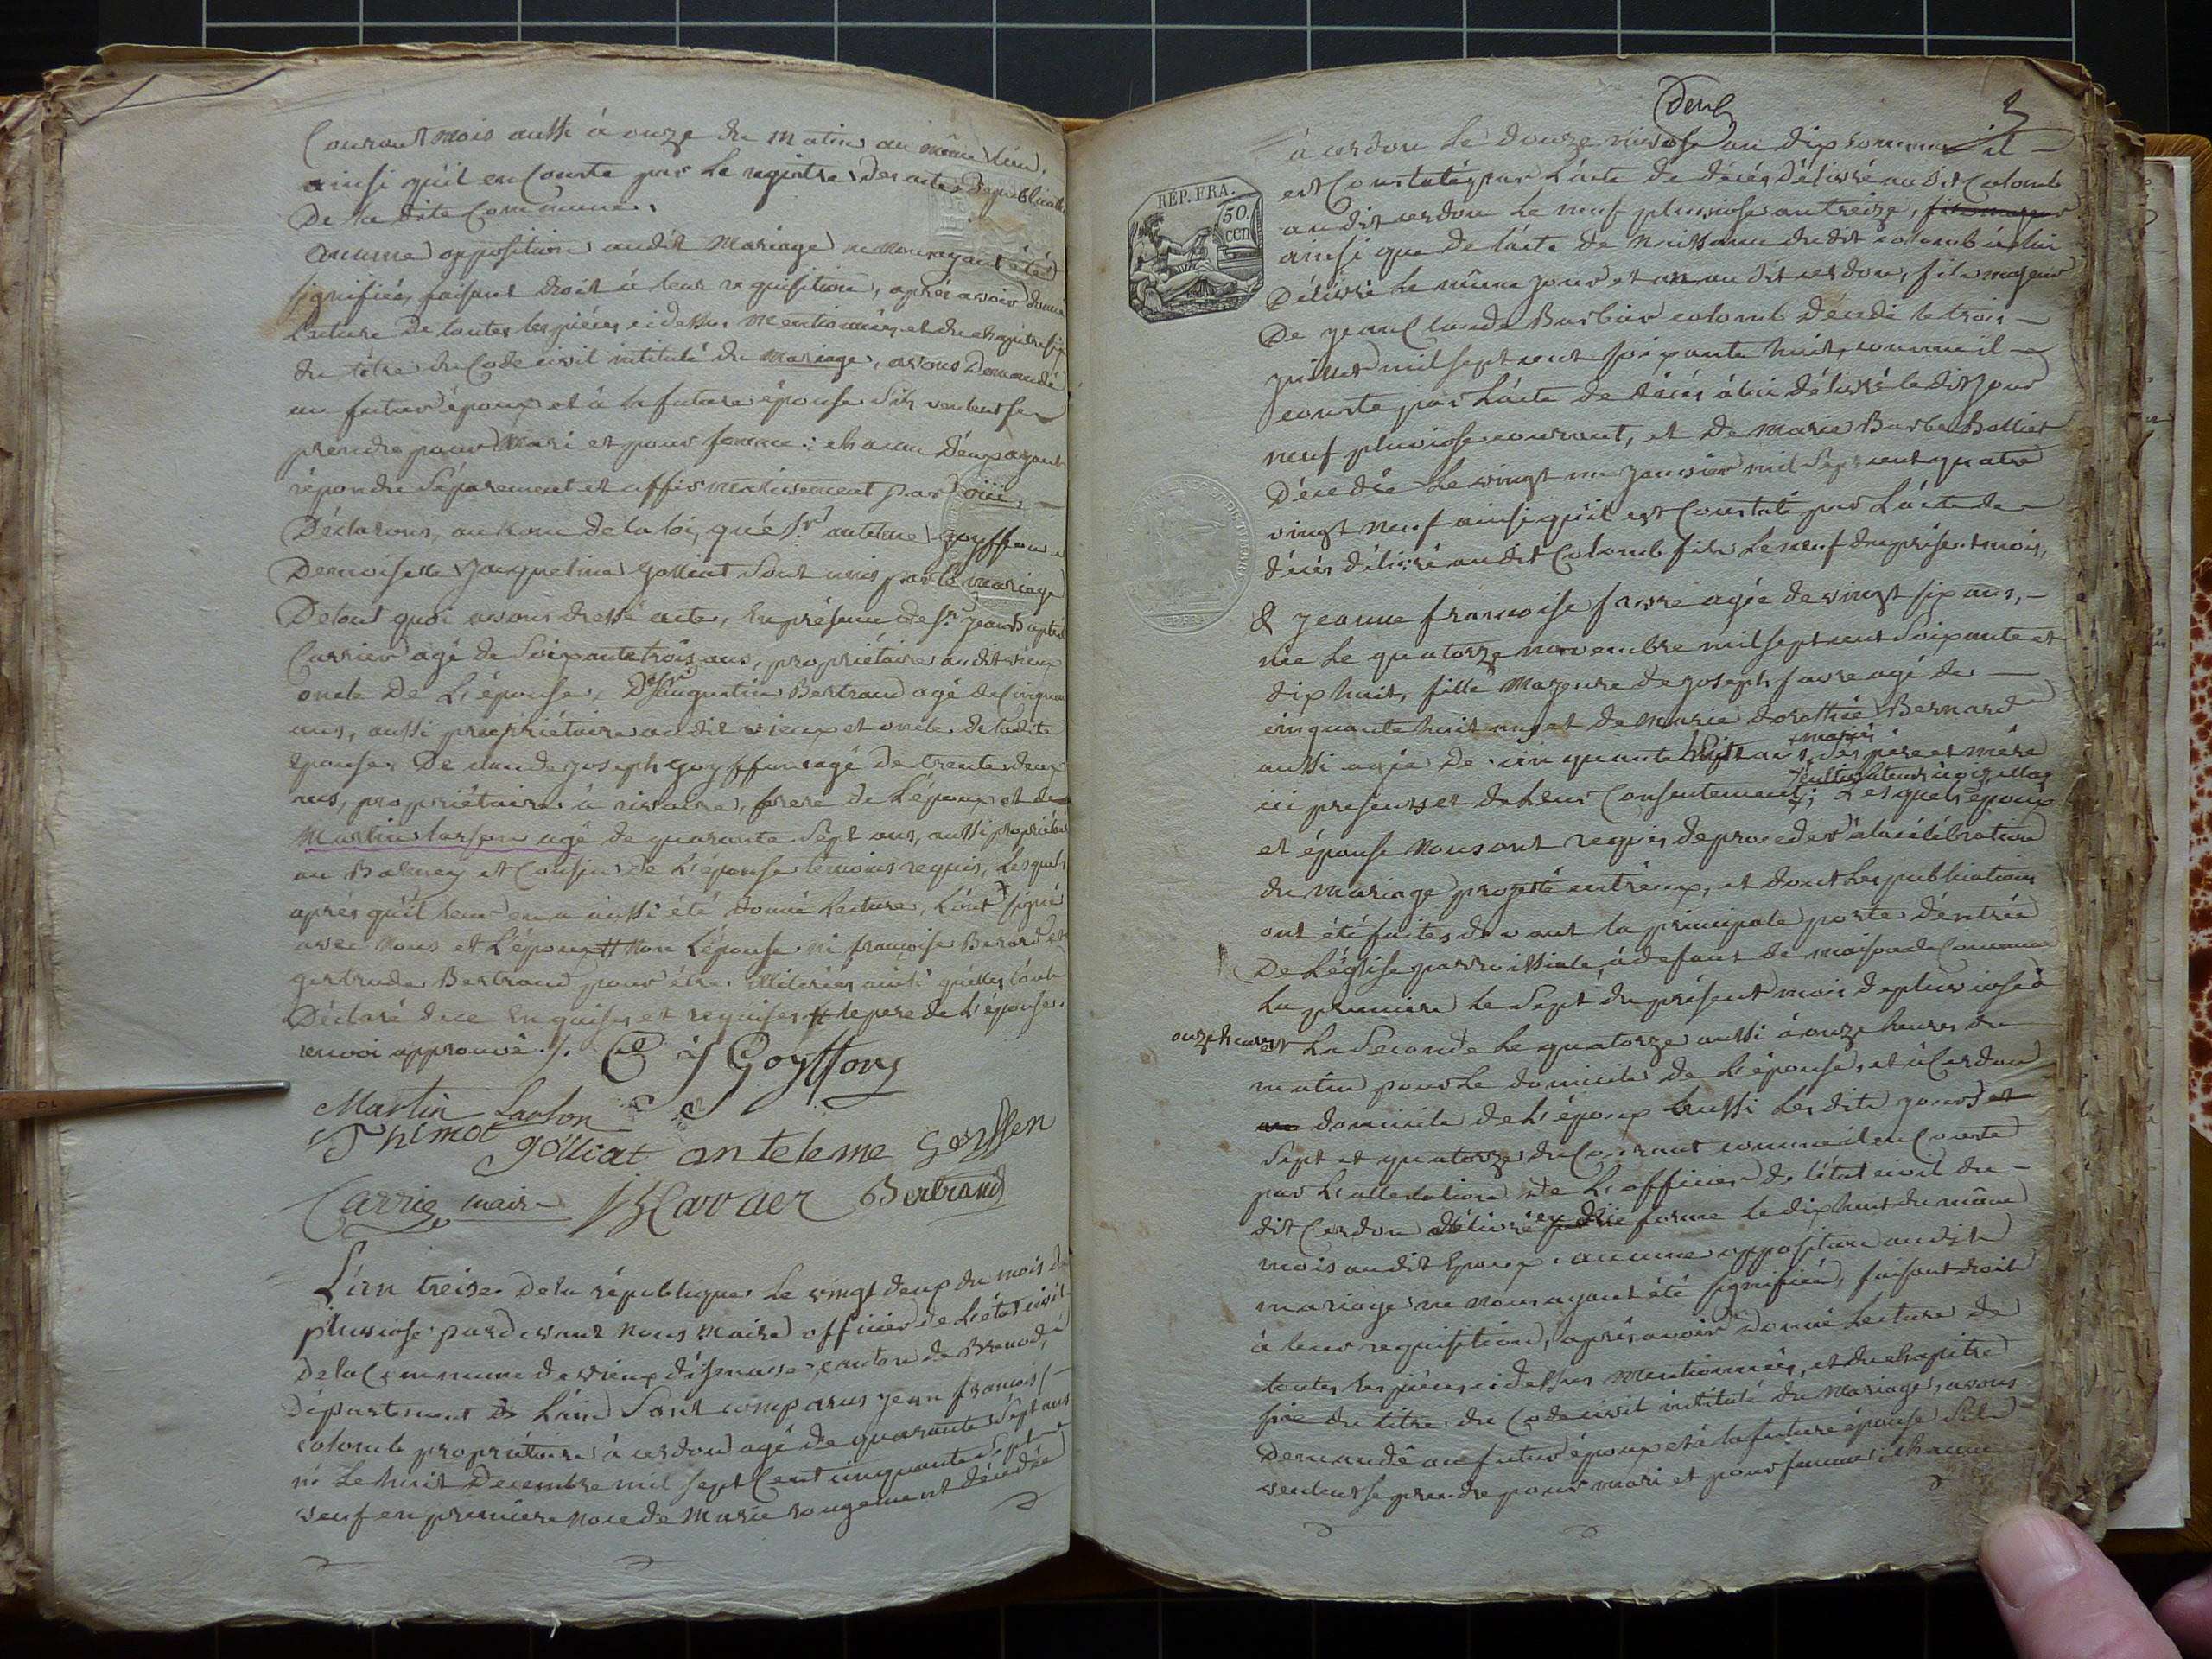 Courant mois aussi à onze du matin au même lieu,
ainsi qu'il en Conste par le registre des actes de publication
De la dite Commune.
Aucune opposition audit mariage ne nous ayant été
signifiée, faisant droit à leur requisition, après avoir donné
Lecture De toutes les pièces ci dessus mentionnées et du chapitre six
du titre du Code civil intitulé du mariage, avons Demandé
au futur époux et à la future épouse s'ils veulent se
prendre pour mari et pour femme : chacun d'eux ayant
répondu séparement et affirmativement par oui,
Déclarons, au nom de la loi, que Sr. antelme goyffon et
Demoiselle Jacqueline golliat sont unis par le mariage
De tout quoi avons dressé acte, En présence de Sr. jean Baptiste
Carrier agé de soixante trois ans, propriétaire audit vieux
oncle De L'épouse, De augustin Bertrand agé de cinquante
ans, aussi propriétaire au dit vieux et oncle de ladite
épouse, De claude joseph goyffon agé de trente deux
ans, propriétaire à rivoire, frere de L'époux et de
Martin larson agé de quarante sept ans, aussi propriétaire
au Balmey et Cousin de L'épouse témoins requis, Lesquels
après qu'il leur en a aussi été donné lecture, L'ont signé
avec nous et L'époux # non L'épouse ni françoise Berard et
gertrude Bertrand pour être illiterées ainsi qu'elles l'ont
Déclaré de ce Enquises et requises # le pere de L'épouse.
renvoi approuvé ./. C J Goyffong
Martin Larson
Thimot golliat anteleme Goyffon
Carrier maire JBCarrier Bertrand
L'an treise De la république Le vingt deux du mois de
pluviose pardevant nous maire officier de L'état civil
De la Commune de vieux d'isenave, canton de Brenod,
département de L'ain Sont comparus jean françois
colomb propriétaire à cerdon agé de quarante sept ans
né Le huit Decembre mil sept Cent cinquante sept
veuf en premiere noce de Marie rougemont décédée
Deux
2
RÉP. FRA.
50.
cen
à cerdon Le douze nivose an dix comme il
est Constaté par L'acte de décés délivré au dit Colomb
au dit cerdon Le neuf pluviose an treize,
ainsi que de l'acte de naissance du dit colomb à lui
Délivré Le même jour et an au dit cerdon, fils majeur
De jean Claude Barbier colomb Decedé le trois
juillet mil sept cent soixante huit, comme il
conste par L'acte de décés à lui délivré le dit jour
neuf pluviose courant, et De marie Barbe Bollier
Décedée Le vingt un janvier mil Sept cent quatre
vingt neuf ainsi qu'il est Constaté par L'acte de
décés délivré au dit Colomb fils Le neuf du présent mois,
& jeanne francoise favre agée de vingt six ans,
née Le quatorze novembre mil sept cent soixante et
dix huit, fille majeure de joseph favre agé de
cinquante huit ans et de marie dorothée Bernard
aussi agée de cinquante huit ans, mariés ses père et mère
ici presents et de Leur Consentement; Lesquels époux
et épouse nous ont requis de proceder à la célébration
du mariage projetté entr'eux, et dont Les publications
ont été faites devant la principale porte d'entrée
De L'église parroissiale, à defaut de maison de Commune
La premiere Le sept du présent mois de pluviose à
onze heures et La Seconde Le quatorze aussi à onze heures du
matin pour Le domicile de L'épouse, et à Cerdon
domicile de L'époux aussi Les dits jours
sept et quatorze du Courant comme il en Conste
par L'attestation de L'officier de L'état civil du
dit Cerdon délivrée en due forme le dix huit du même
mois au dit Epoux. aucune opposition au dit
mariage ne nous ayant été signifiée, faisant droit
à leur requisition, après avoir donné Lecture de
toutes Les pièces ci dessus mentionnées, et du chapitre
six du titre du Code civil intitulé du mariage, avons
Demandé au futur époux et à la future épouse s'ils
veulent se prendre pour mari et pour femme : chacun